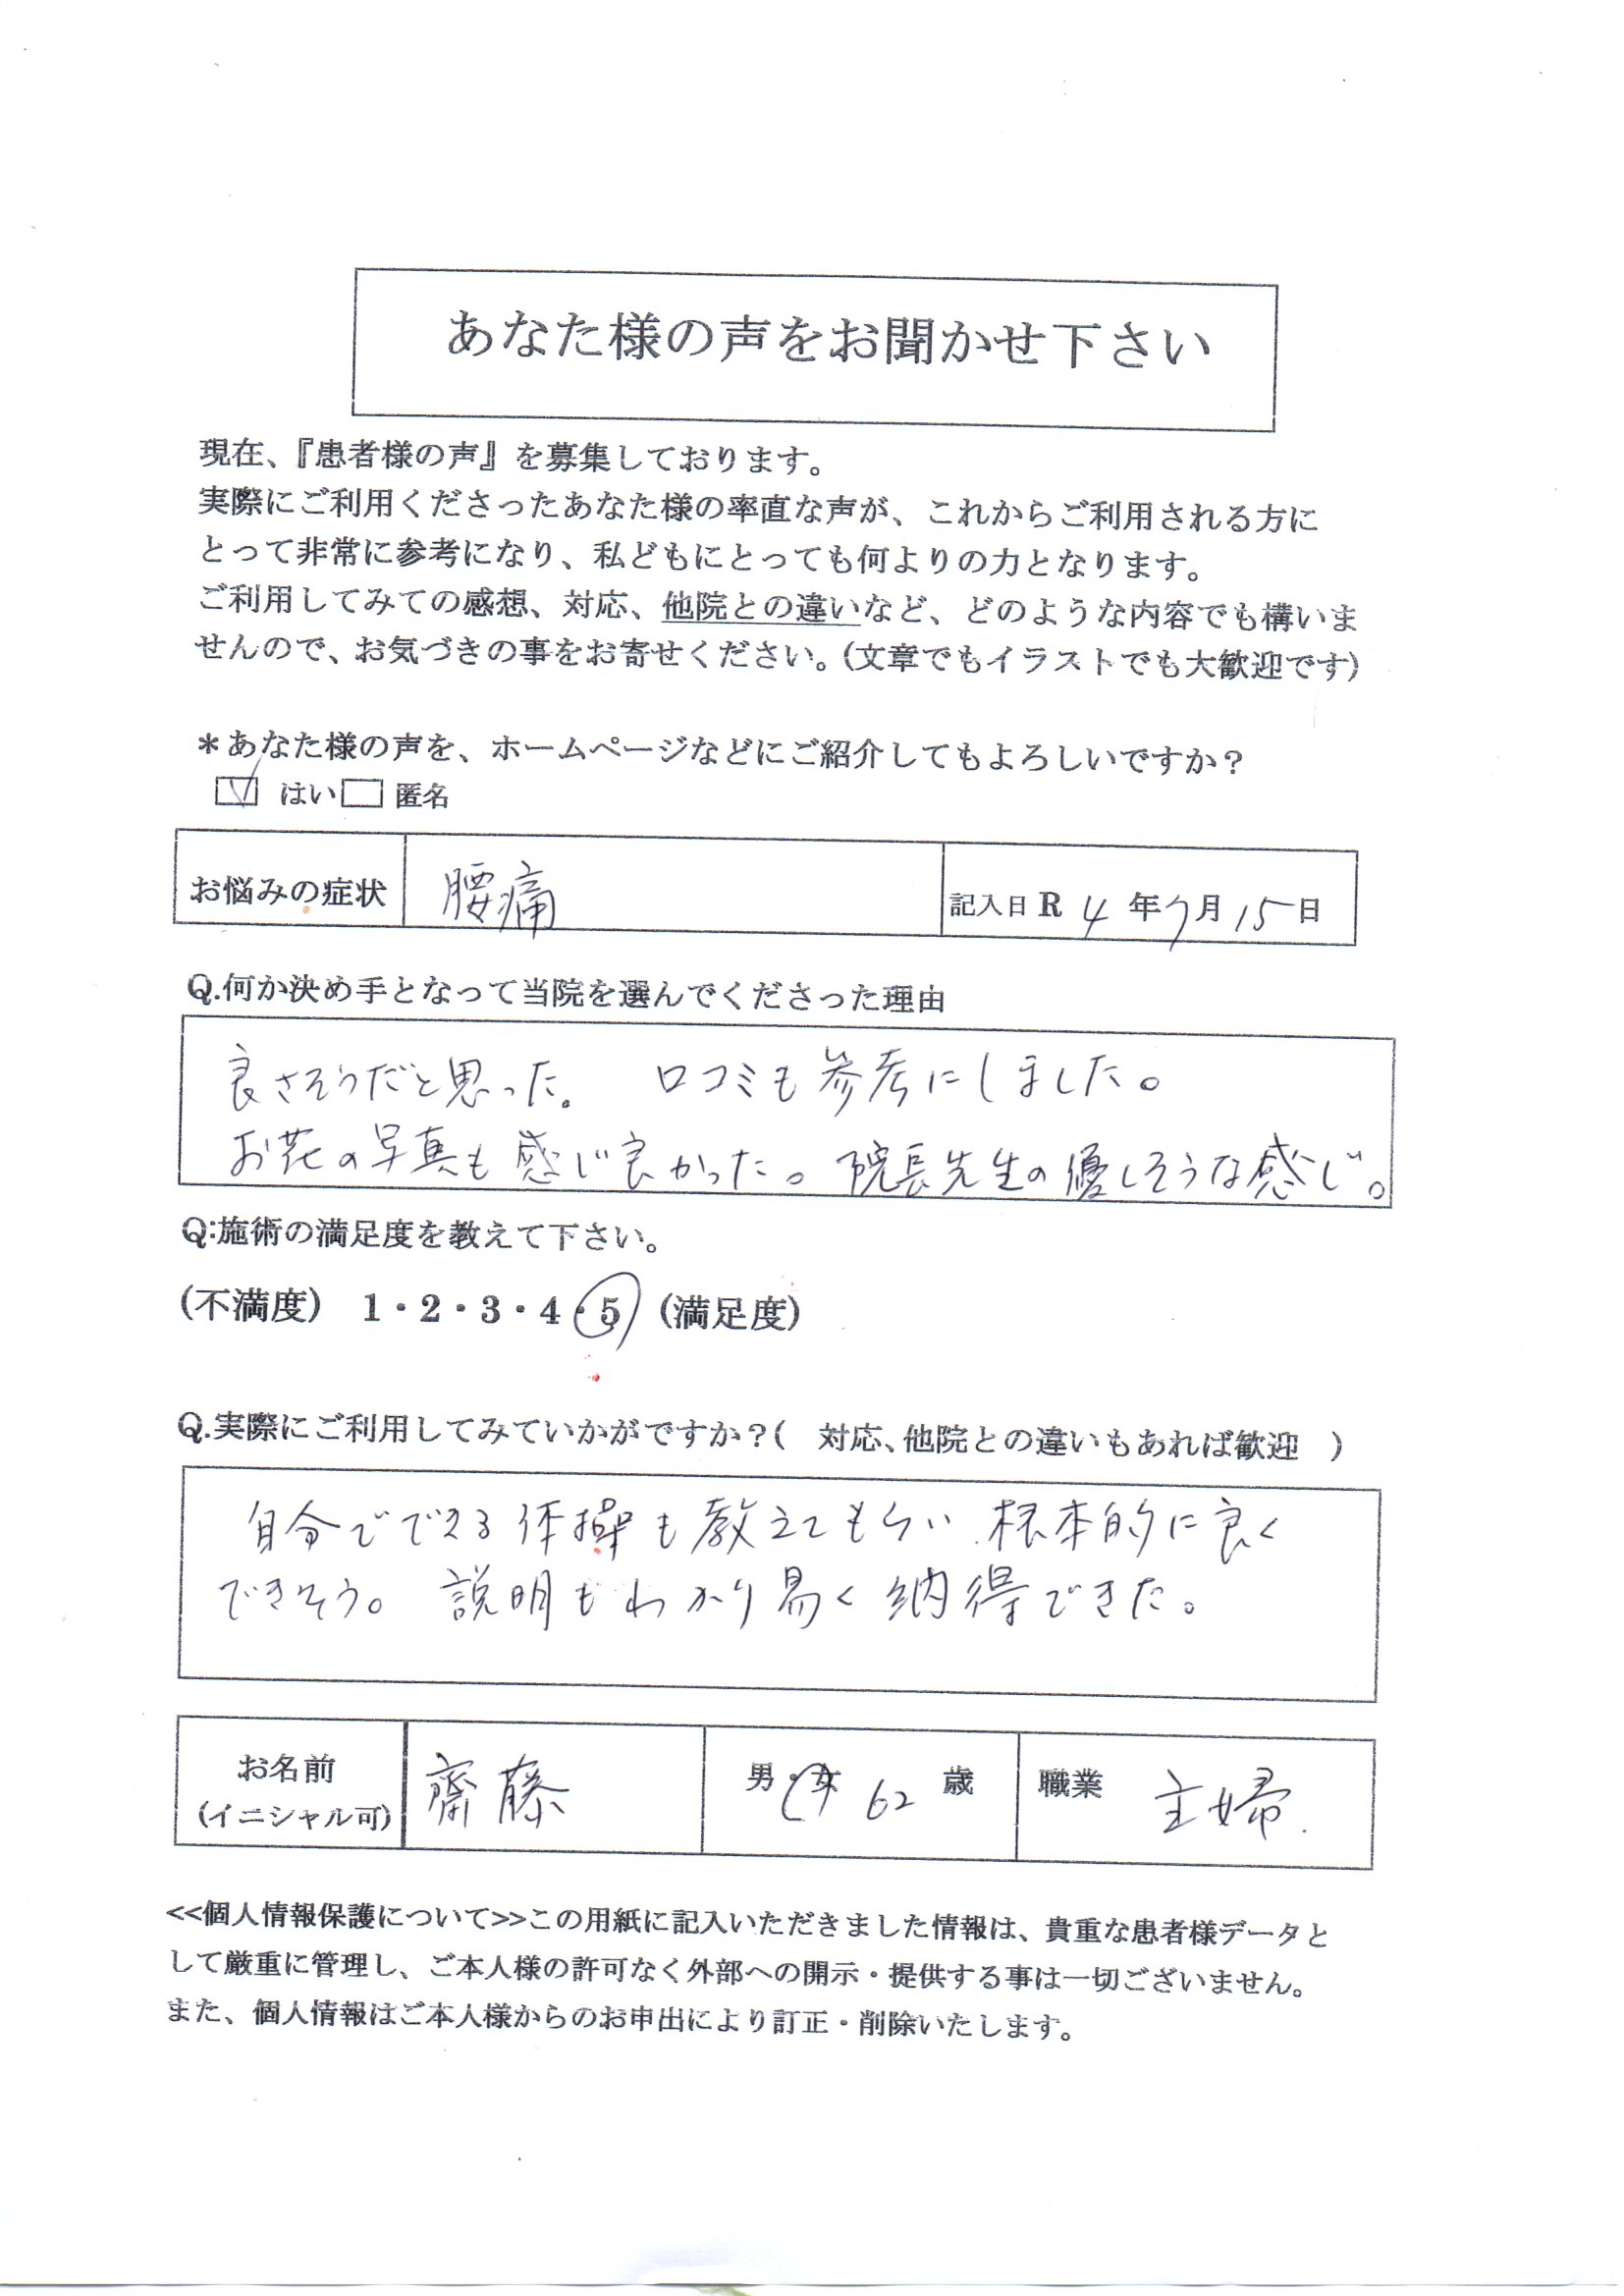 あなた様の声をお聞かせ下さい
現在、『患者様の声』を募集しております。
実際にご利用くださったあなた様の率直な声が、これからご利用される方に
とって非常に参考になり、私どもにとっても何よりの力となります。
ご利用してみての感想、対応、他院との違いなど、どのような内容でも構いま
せんので、お気づきの事をお寄せください。(文章でもイラストでも大歓迎です)
＊あなた様の声を、ホームページなどにご紹介してもよろしいですか？
☑ はい □ 匿名
お悩みの症状 腰痛 記入日 R 4 年 7 月 15 日
Q.何か決め手となって当院を選んでくださった理由
良さそうだと思った。 口コミも参考にしました。
お花の写真も感じ良かった。院長先生の優しそうな感じ。
Q:施術の満足度を教えて下さい。
(不満度) 1・2・3・4・5 (満足度)
Q.実際にご利用してみていかがですか？( 対応、他院との違いもあれば歓迎 )
自分でできる体操も教えてもらい 根本的に良く
できそう。 説明もわかり易く納得できた。
お名前 齋藤 男・女 62 歳 職業 主婦.
(イニシャル可)
<<個人情報保護について>>この用紙に記入いただきました情報は、貴重な患者様データと
して厳重に管理し、ご本人様の許可なく外部への開示・提供する事は一切ございません。
また、個人情報はご本人様からのお申出により訂正・削除いたします。